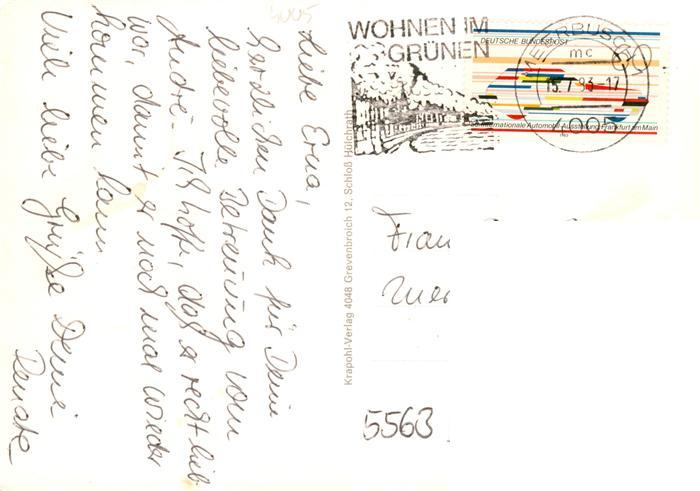 4005
Liebe Erna,
herzlichen Dank für Deine
liebevolle Betreuung vom
André - Ich hoffe, daß er recht lieb
war, damit er noch mal wieder
kommen kann
Viele liebe Grüße Deine
Renate
Krapohl-Verlag 4048 Grevenbroich 12, Schloß Hülchrath
WOHNEN IM
GRÜNEN
MEERBUSCH 1
mc
15.7.83-17
4005
DEUTSCHE BUNDESPOST
60
Internationale Automobil-Ausstellung Frankfurt am Main
Frau
5563